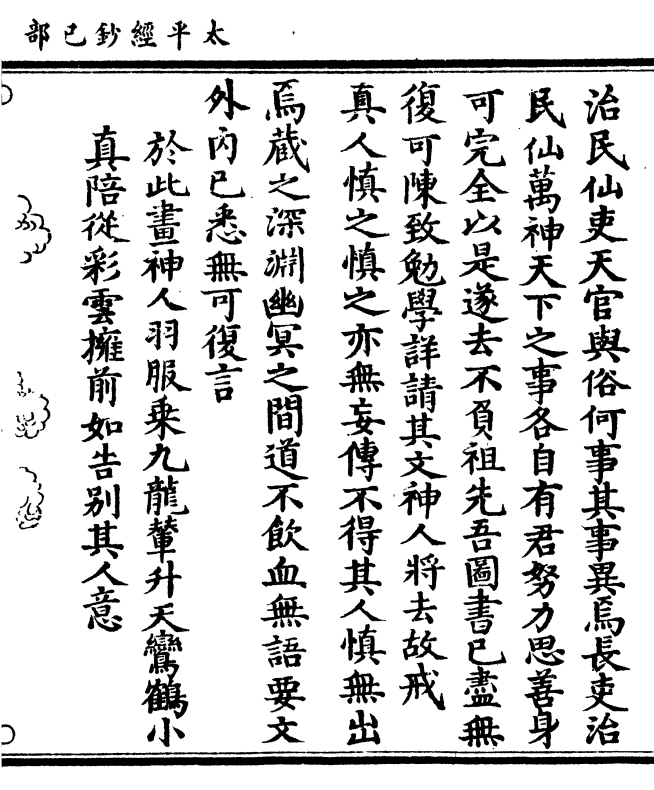 太平經鈔巳部
治民仙吏天官與俗何事其事異焉長吏治
民仙萬神天下之事各自有君努力思善身
可完全以是遂去不負祖先吾圖書已盡無
復可陳致勉學詳請其文神人將去故戒
真人慎之慎之亦無妄傳不得其人慎無出
焉蔵之深淵幽冥之間道不飲血無語要文
外内已悉無可復言
於此畫神人羽服乗九龍輦升天鸞鶴小
真陪從彩雲擁前如告别其人意